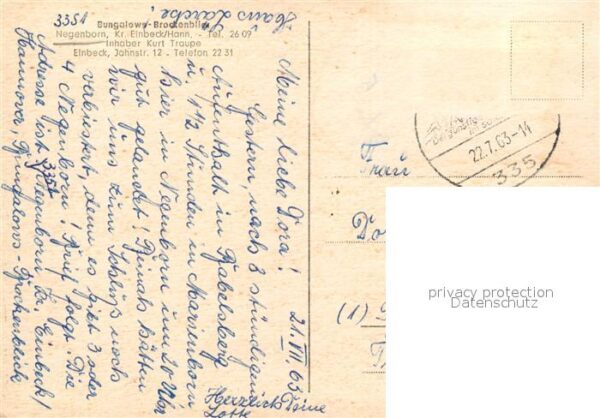 3351
Bungalows-Brockenblick
Negenborn, Kr. Einbeck/Hann. - Tel. 26 09
Inhaber Kurt Traupe
Einbeck, Jahnstr. 12 - Telefon 22 31
21. VII 63
Meine liebe Dora!
Gestern, nach 8 stündigen
Aufenthalt in Babelsberg
u. 1 1/2 Stunden in Marienborn
hier in Negenborn um 20 Uhr
gut gelandet! Beinah hätten
wir uns zum Schluß noch
verirrt, denn es gibt 3 oder
4 Negenborn! Brief folgt! Die
Adresse ist 3351 Negenborn Kr. Einbeck/
Hannover, Bungalows-Brockenblick
Herzlichst Deine
Lotte
Hans
22.7.63-14
335
Frau
Do
(1)
privacy protection
Datenschutz